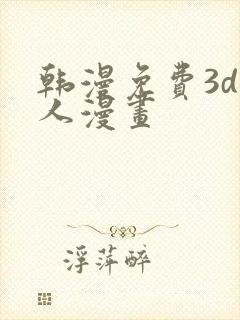 韩漫免費3d
人漫畫
浮萍醉